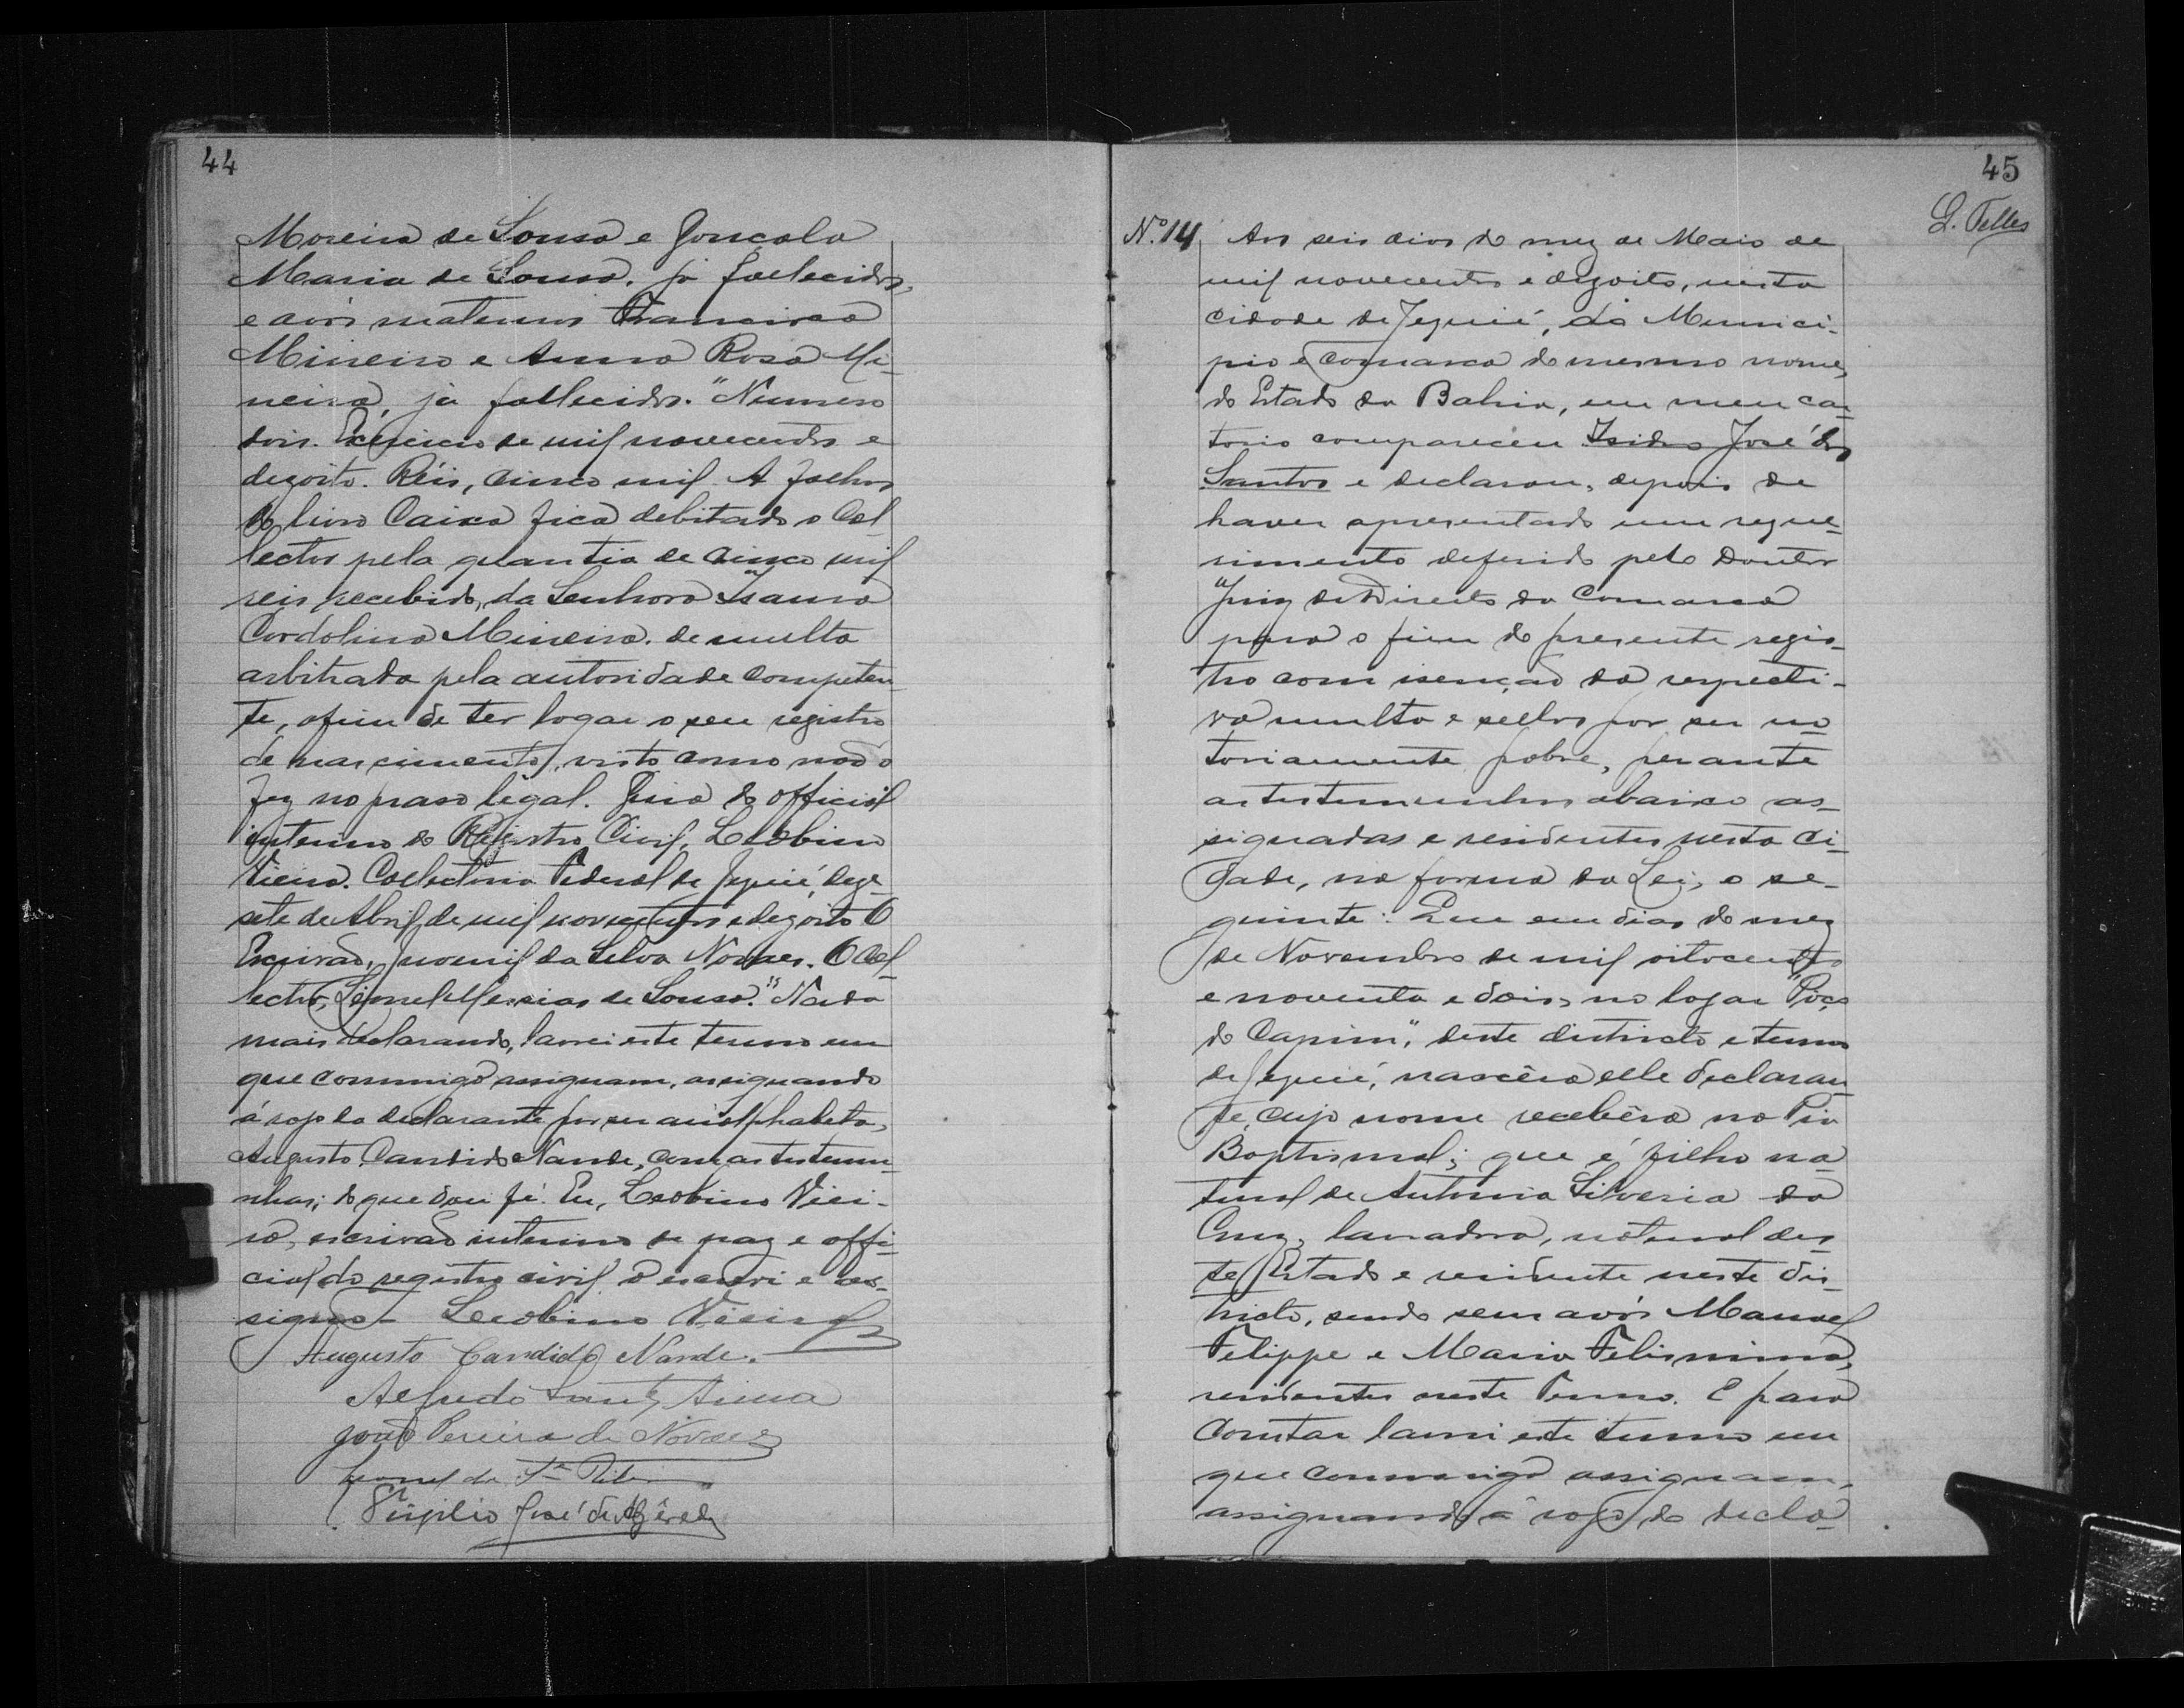 44
Moreira de Sousa e Gonçala
Maria de Sousa, já fallecidos,
e avós maternos Francisco
Mineiro e Anna Rosa Mi-
neira, já fallecidos. "Numero
dois. Exercicio de mil novecentos e
dezoito. Réis, cinco mil. A folhas
do livro Caixa fica debitado o Col-
lector pela quantia de cinco mil
reis recebido, da Senhora Isaura
Cordolina Mineira, de multa
arbitrada pela autoridade competen-
te, afim de ter logar o seu registro
de nascimento, visto como não o
fez no praso legal. Guia do official
interino do Registro Civil, Leobino
Vieira. Collectoria Federal de Jequié, deze-
sete de Abril de mil novecentos e dezoito O
Escrivão, Juvenil da Silva Novaes. O Col-
lector, Lionel Messias de Sousa." Nada
mais declarando, lavrei este termo em
que commigo assignam, assignando
á rogo da declarante por ser analphabeta,
Augusto Candido Nande, com as testemu-
nhas; do que dou fé. Eu, Leobino Viei-
ra, escrivão interino de paz e offi-
cial do registro civil o escrevi e as-
signo. Leobino Vieira
Augusto Candido Nande.
Alfredo Sant'Anna
João Pereira de Novaes
Leonel da
Virgilio José de
45
G. Telles
Nº 14 Aos seis dias do mez de Maio de
mil novecentos e dezoito, nesta
cidade de Jequié, do Munici-
pio e Comarca do mesmo nome,
do Estado da Bahia, em meu car-
torio compareceu Isidro José dos
Santos e declarou, depois de
haver apresentado um reque-
rimento deferido pelo Doutor
Juiz de Direito da Comarca
para o fim do presente regis-
tro com isenção da respecti-
va multa e sellos por ser no-
toriamente pobre, perante
as testemunhas abaixo as-
signadas e residentes nesta ci-
dade, na forma da Lei, o se-
guinte: Que em dias do mez
de Novembro de mil oitocentos
e noventa e dois, no logar "Poço
do Capim," deste districto e termo
de Jequié, nascêra elle declaran-
te, cujo nome recebêra na Pia
Baptismal; que é filho na-
tural de Antonia Silveria da
Cruz, lavradora, natural des-
te Estado e residente neste dis-
tricto, sendo seus avós Manoel
Felippe e Maria Felismina,
residentes neste Termo. E para
constar lavrei este termo em
que commigo assignam,
assignando á rogo do decla-